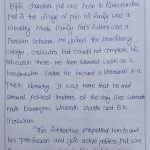 Bipin Chandra Pal was born to Ramchandra
Pal in the village of Pail. His family was a
wealthy Hindu family. Pal's father was a
Persian scholar. He joined the Presidency
College, Calcutta but could not complete his
education there. He then started work as a
headmaster. Later, he became a librarian in a
Public library. It was here that he met
several political leaders of the day like Surendra
nath Banerjee, Shivnath Shastri and B.K.
Goswami.
This interaction prompted him to quit
his profession and join active politics. Pal was